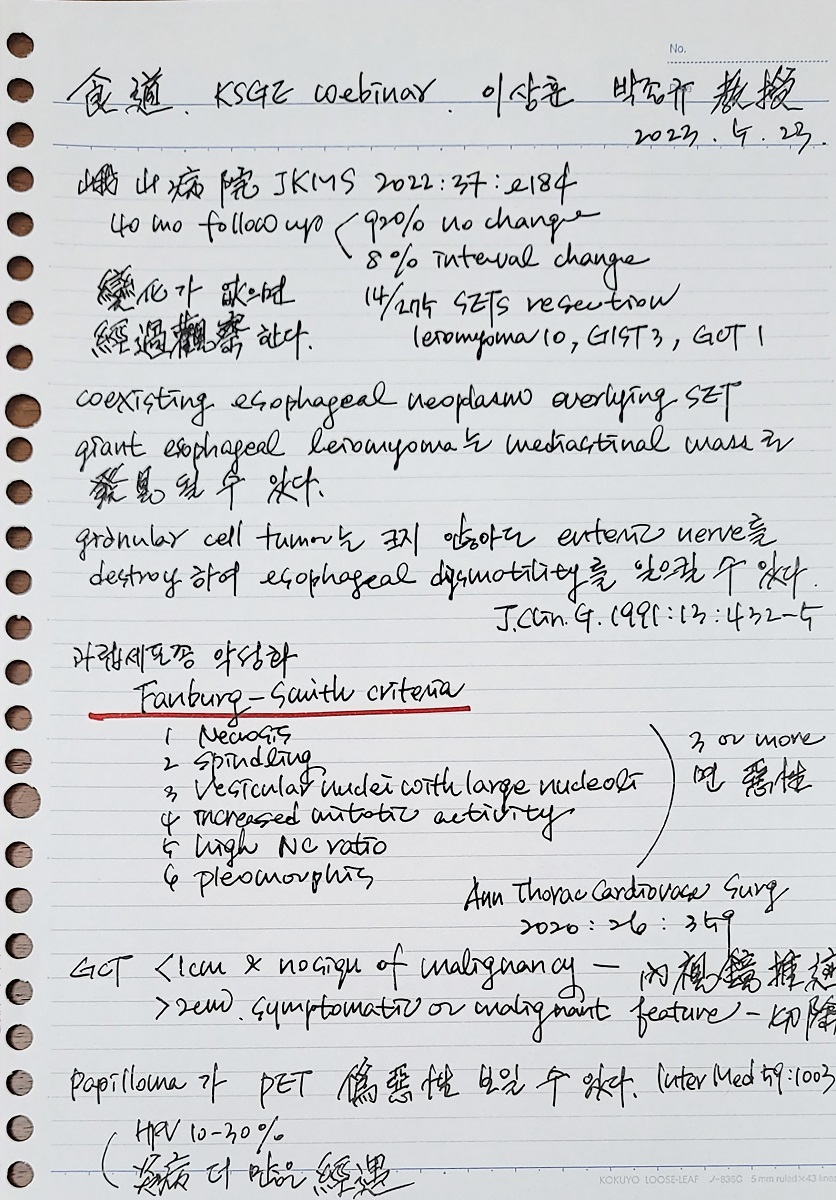 No.
食道. KSGE webinar. 이상훈 박종규 敎授
2023. 5. 23.
峨山病院 JKMS 2022:37:e184
40 mo follow up 92% no change
8% interval change
變化가 없으면 14/275 SETs resection
經過觀察 한다. leiomyoma 10, GIST 3, GCT 1
coexisting esophageal neoplasm overlying SET
giant esophageal leiomyoma는 mediastinal mass로
發見 될 수 있다.
granular cell tumor는 크지 않아도 enteric nerve를
destroy 하여 esophageal dysmotility를 일으킬 수 있다.
J. Clin. G. 1991:13:432-5
과립세포종 악성화
Fanburg-Smith criteria
1 Necrosis
2 spindling
3 vesicular nuclei with large nucleoli
3 or more
면 惡性
4 increased mitotic activity
5 high NC ratio
6 pleomorphis
Ann Thorac Cardiovasc Surg
2020:26:359
GCT <1cm & no sign of malignancy - 內視鏡推適
>2cm. symptomatic or malignant feature - 切除
papilloma 가 PET 僞惡性 보일 수 있다. Inter Med 59:1003
HPV 10-30%
더 많은 經過
KOKUYO LOOSE-LEAF ノ-836C 5 mm ruled×43 lines